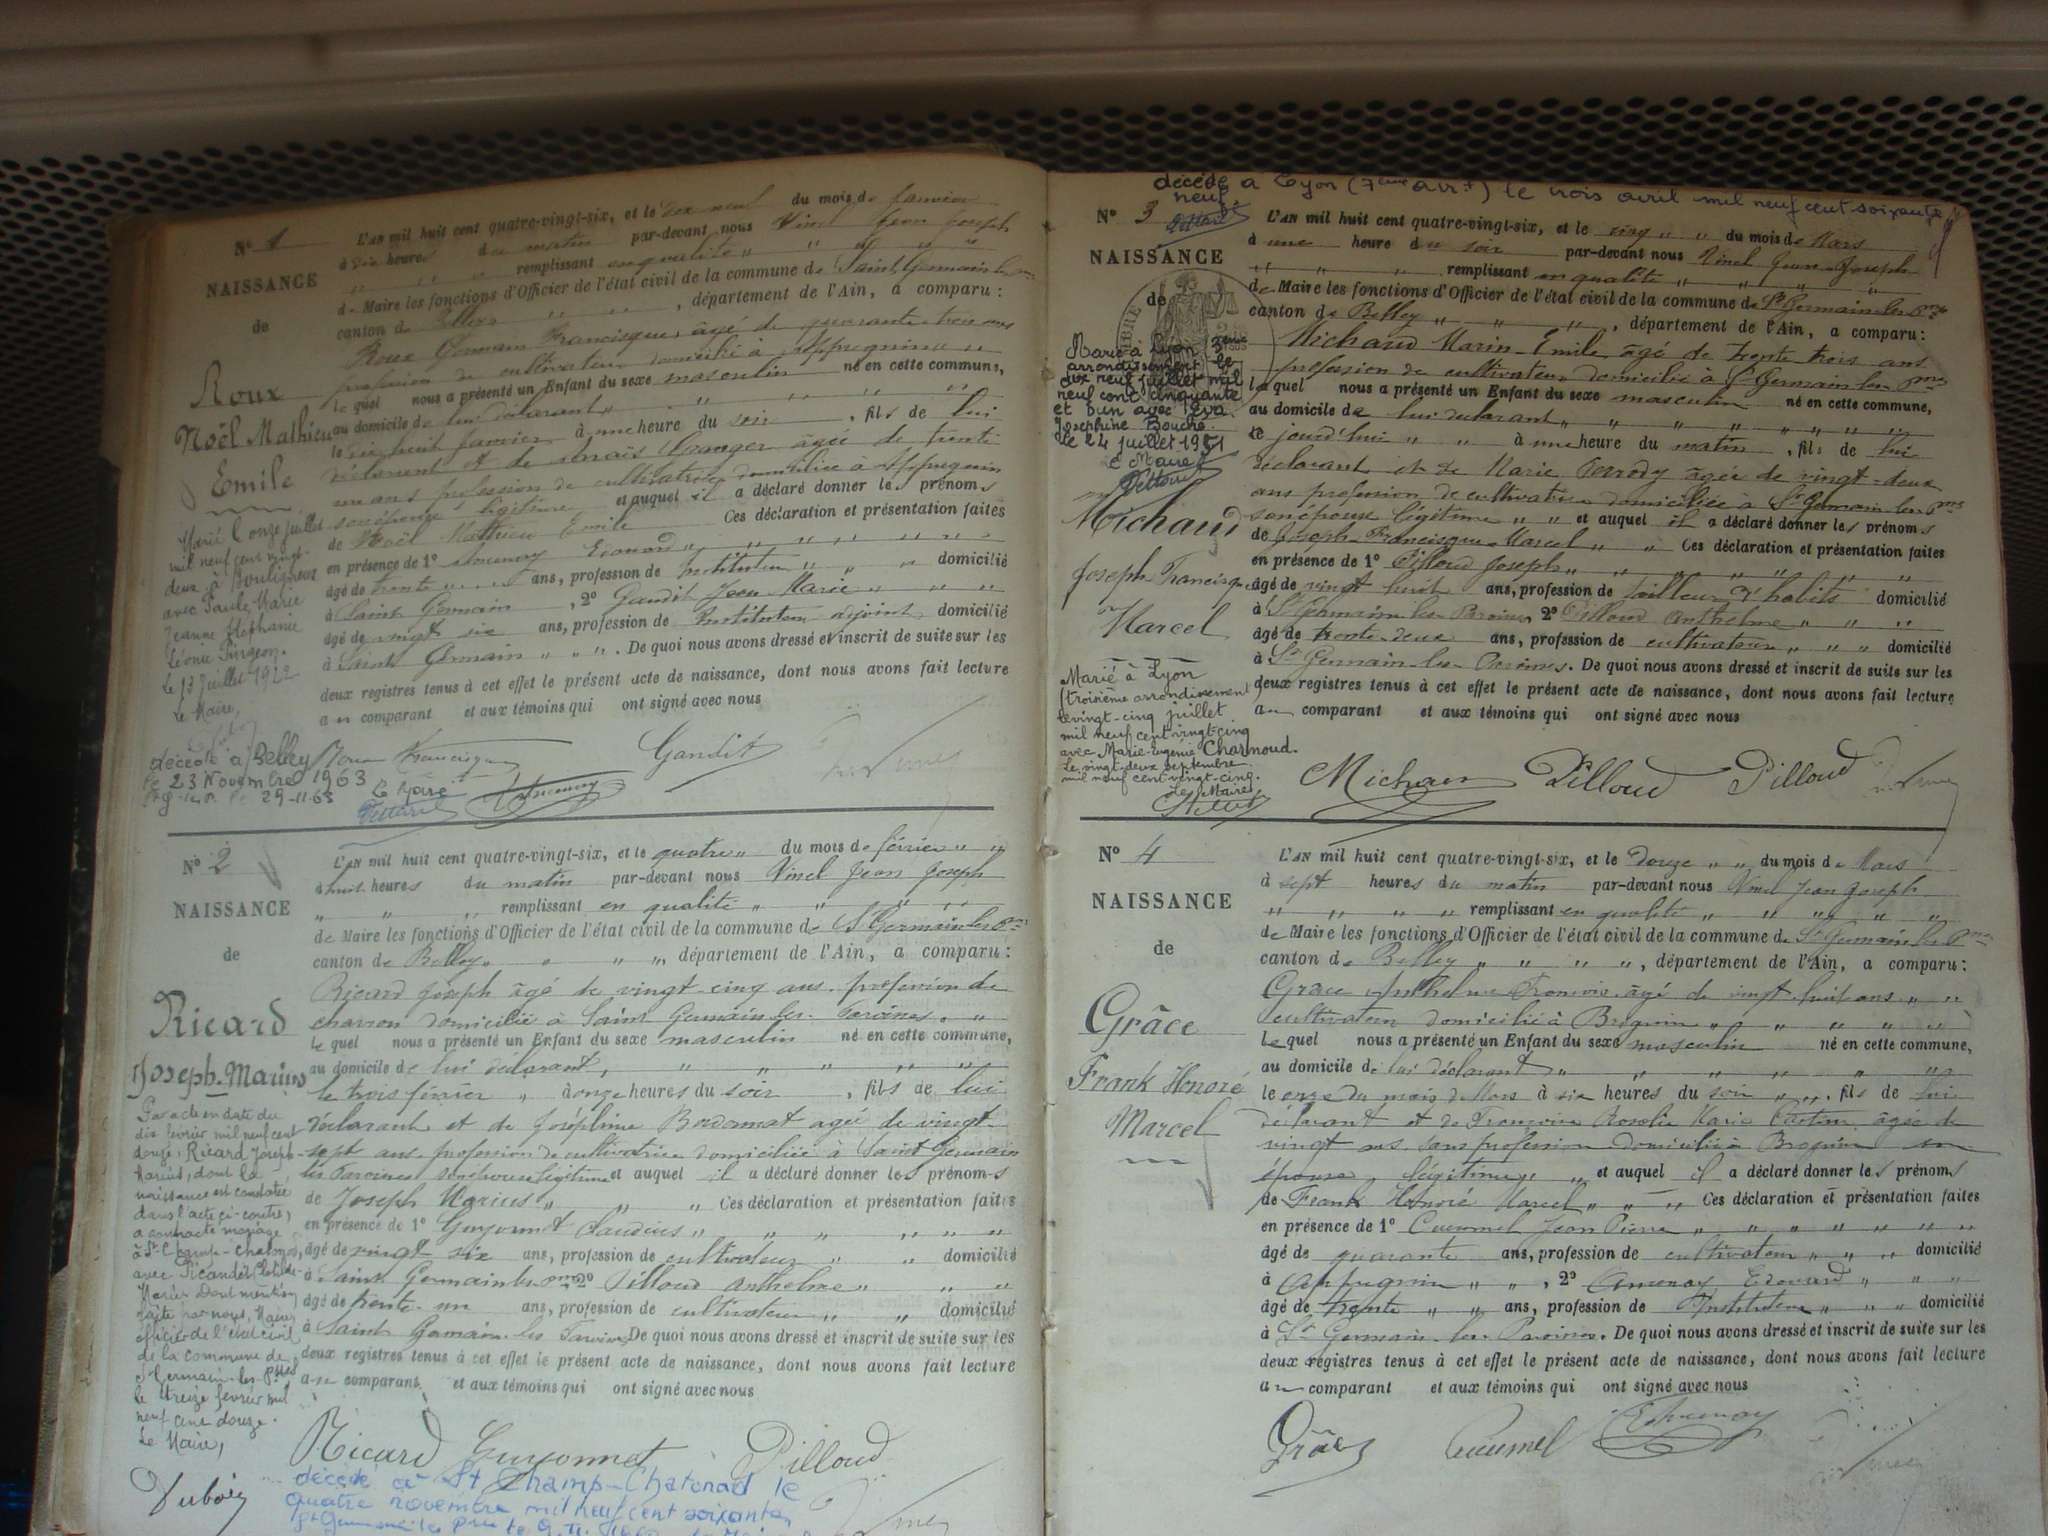 N° 1
NAISSANCE
de
Roux
Noël Mathieu
Emile
Marié l'onze juillet
mil neuf cent vingt-
deux à
avec Paule Marie
Jeanne Stéphanie
Léonie
Le 13 Juillet 1922
Le Maire,
décédé à Belley
le 23 Novembre 1963
29-11-63
Le Maire
L'AN mil huit cent quatre-vingt-six, et le dix neuf du mois de Janvier
à six heures du matin par-devant nous Vinel Jean Joseph
" " " remplissant en qualité " " " "
de Maire les fonctions d'Officier de l'état civil de la commune de Saint Germain les
canton de Belley " " , département de l'Ain, a comparu :
Roux Germain Francisque, âgé de quarante trois ans
profession de cultivateur domicilié à Appregnin "
lequel nous a présenté un Enfant du sexe masculin né en cette commune,
au domicile de lui déclarant " " " "
le dix huit janvier à une heure du soir , fils de lui
déclarant et de âgée de trente
un ans profession de cultivatrice domiciliée à Appregnin
son épouse légitime et auquel il a déclaré donner les prénoms
de Noël Mathieu Emile Ces déclaration et présentation faites
en présence de 1° Edouard " " " "
âgé de trente " ans, profession de Instituteur " " domicilié
à Saint Germain , 2° Gandit Jean Marie " "
âgé de vingt six ans, profession de Instituteur adjoint domicilié
à Saint Germain " " . De quoi nous avons dressé et inscrit de suite sur les
deux registres tenus à cet effet le présent acte de naissance, dont nous avons fait lecture
au comparant et aux témoins qui ont signé avec nous
Roux Francisque Gandit
N° 2
NAISSANCE
de
Ricard
Joseph-Marius
Par acte en date du
dix février mil neuf cent
douze, Ricard Joseph-
Marius, dont la
naissance est constatée
dans l'acte ci-contre,
a contracté mariage
à St Champ-Chatonod,
avec Picandet Clotilde-
Marie. Dont mention
faite par nous, Maire,
officier de l'état civil
de la commune de
St Germain-les-Pses
le treize février mil
neuf cent douze.
Le Maire,
Dubois
L'AN mil huit cent quatre-vingt-six, et le quatre " du mois de février " "
à huit heures du matin par-devant nous Vinel Jean Joseph
" " " remplissant en qualité " " "
de Maire les fonctions d'Officier de l'état civil de la commune de St Germain les
canton de Belley " " " , département de l'Ain, a comparu :
Ricard Joseph âgé de vingt-cinq ans profession de
charron domicilié à Saint Germain les Paroisses "
lequel nous a présenté un Enfant du sexe masculin né en cette commune,
au domicile de lui déclarant, " " " "
le trois février " à onze heures du soir , fils de lui
déclarant et de Joséphine Bordonnat âgée de vingt
sept ans profession de cultivatrice domiciliée à Saint Germain
les Paroisses son épouse légitime et auquel il a déclaré donner les prénoms
de Joseph Marius " " " Ces déclaration et présentation faites
en présence de 1° Guyonnet Claudius " " " "
âgé de vingt six ans, profession de cultivateur " " domicilié
à Saint Germain les 2° Pilloud Anthelme " "
âgé de trente-un ans, profession de cultivateur " " domicilié
à Saint Germain les Paroisses De quoi nous avons dressé et inscrit de suite sur les
deux registres tenus à cet effet le présent acte de naissance, dont nous avons fait lecture
au comparant et aux témoins qui ont signé avec nous
Ricard Guyonnet Pilloud
décédé à St Champ-Chatonod le
quatre novembre mil neuf cent soixante
décédé à Lyon (7ème arrt) le trois avril mil neuf cent soixante
neuf
N° 3
NAISSANCE
de
Marié à Lyon 3eme
arrondissement le
dix neuf juillet mil
neuf cent cinquante
et un avec Eva
Joséphine Bouché
le 24 juillet 1951
Le Maire
Michaud
Joseph Francisque
Marcel
Marié à Lyon
(troisième arrondissement
le vingt-cinq juillet
mil neuf cent vingt-cinq
avec Marie-Eugénie Charmoud.
Le vingt-deux septembre
mil neuf cent vingt-cinq.
Le Maire,
L'AN mil huit cent quatre-vingt-six, et le cinq " " du mois de Mars
à une heure du soir par-devant nous Vinel Jean-Joseph
" " " remplissant en qualité " " " "
de Maire les fonctions d'Officier de l'état civil de la commune de St Germain-les-
canton de Belley " " " , département de l'Ain, a comparu :
Michaud Marin-Emile âgé de trente trois ans
profession de cultivateur domicilié à St Germain les
lequel nous a présenté un Enfant du sexe masculin né en cette commune,
au domicile de lui déclarant " " " " "
le jourd'hui " " à une heure du matin , fils de lui
déclarant et de Marie Perrody âgée de vingt-deux
ans profession de cultivatrice domiciliée à St Germain les
son épouse légitime " " et auquel il a déclaré donner les prénoms
de Joseph-Francisque-Marcel " " Ces déclaration et présentation faites
en présence de 1° Pilloud Joseph " " " "
âgé de vingt huit ans, profession de tailleur d'habits domicilié
à St Germain les Paroisses 2° Pilloud Anthelme " " "
âgé de trente-deux ans, profession de cultivateur " " domicilié
à St Germain les Paroisses. De quoi nous avons dressé et inscrit de suite sur les
deux registres tenus à cet effet le présent acte de naissance, dont nous avons fait lecture
au comparant et aux témoins qui ont signé avec nous
Michaud Pilloud Pilloud
N° 4
NAISSANCE
de
Grâce
Frank Honoré
Marcel
L'AN mil huit cent quatre-vingt-six, et le douze " " du mois de Mars
à sept heures du matin par-devant nous Vinel Jean Joseph
" " " " remplissant en qualité " " " "
de Maire les fonctions d'Officier de l'état civil de la commune de St Germain les
canton de Belley " " " " , département de l'Ain, a comparu :
Grâce Anthelme François âgé de vingt huit ans " "
cultivateur domicilié à Brognin " " " "
lequel nous a présenté un Enfant du sexe masculin né en cette commune,
au domicile de lui déclarant " " " "
le onze du mois de Mars à six heures du soir " . fils de lui
déclarant et de Françoise Rosalie Marie âgée de
vingt ans sans profession domiciliée à Brognin son
épouse légitime, " et auquel il a déclaré donner les prénoms
de Frank Honoré Marcel " " " Ces déclaration et présentation faites
en présence de 1° Cuumel Jean Pierre " " " "
âgé de quarante ans, profession de cultivateur " " domicilié
à Appregnin " " , 2° Edouard " "
âgé de trente " " ans, profession de Instituteur " " domicilié
à St Germain-les-Paroisses. De quoi nous avons dressé et inscrit de suite sur les
deux registres tenus à cet effet le présent acte de naissance, dont nous avons fait lecture
au comparant et aux témoins qui ont signé avec nous
Grâce Cuumel